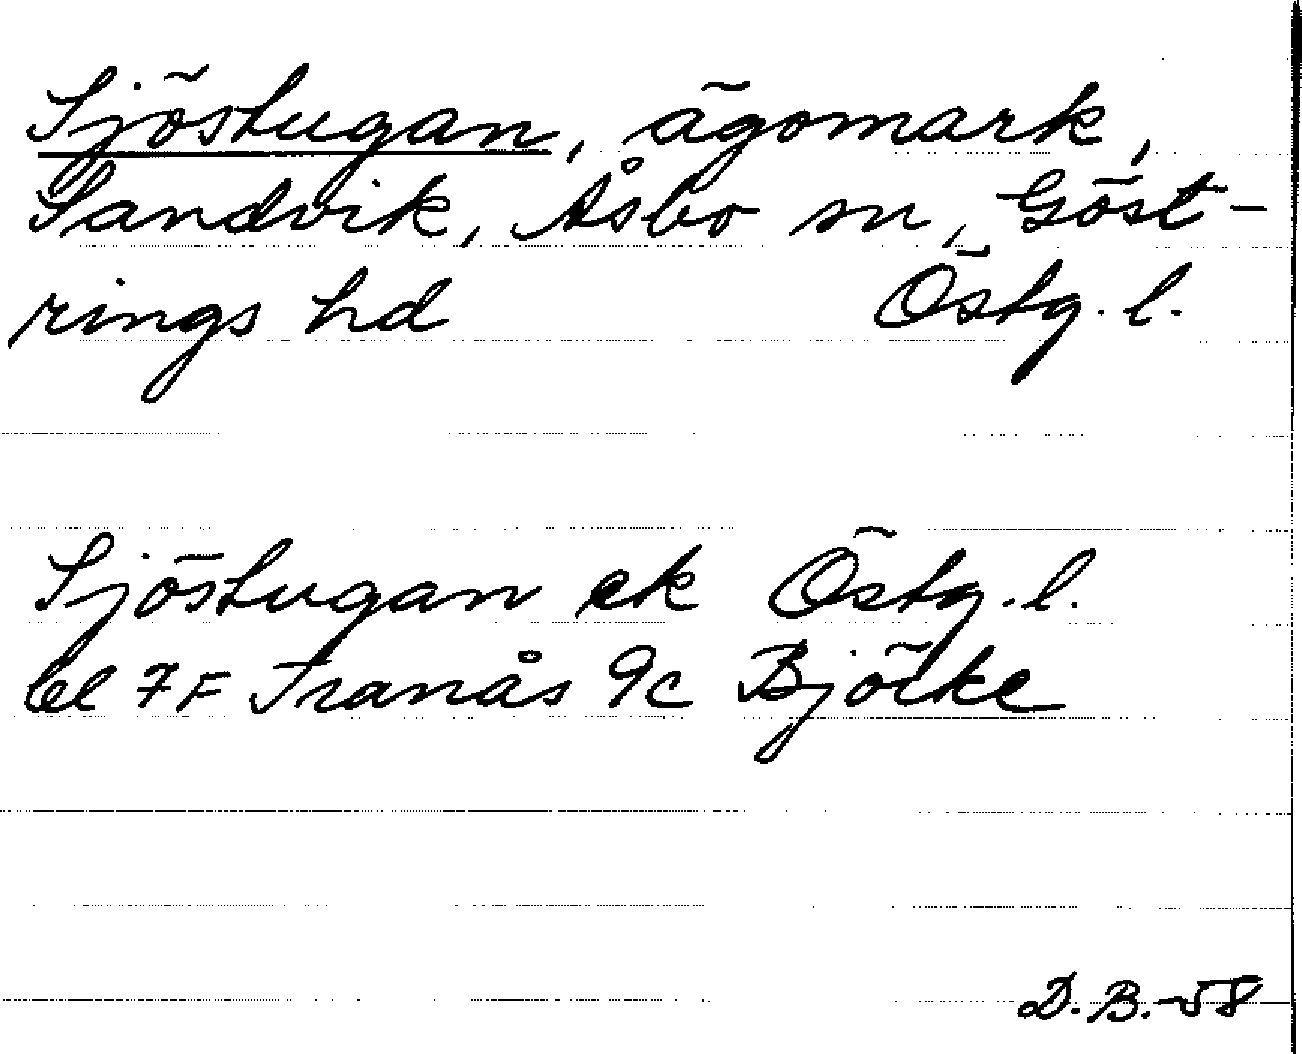 Sjöstugan, ägomark,
Sandvik, Åsbo sn, Göst-
rings hd Östg. l.
Sjöstugan ek Östg. l.
bl 7F Tranås 9c Björke
D.B.-58